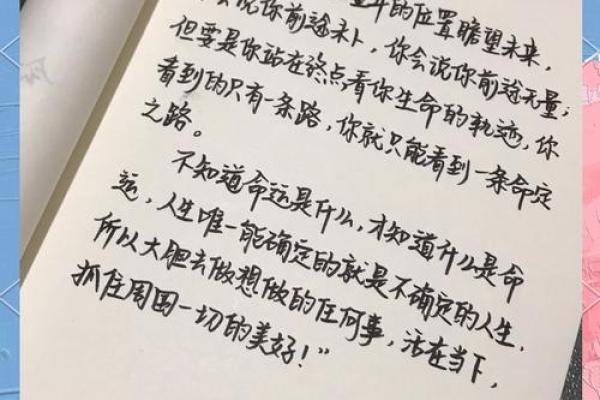 会说你前途未卜，你会说你前途无量；
的位置瞻望未来，
但要是你站在终点看你生命的轨迹，你
看到的只有一条路，你就只能看到一条命定
之路。
不知道命运是什么，才知道什么是命
运，人生唯一能确定的就是不确定的人生，
所以大胆去做想做的任何事，活在当下，
抓住周围一切的美好！”